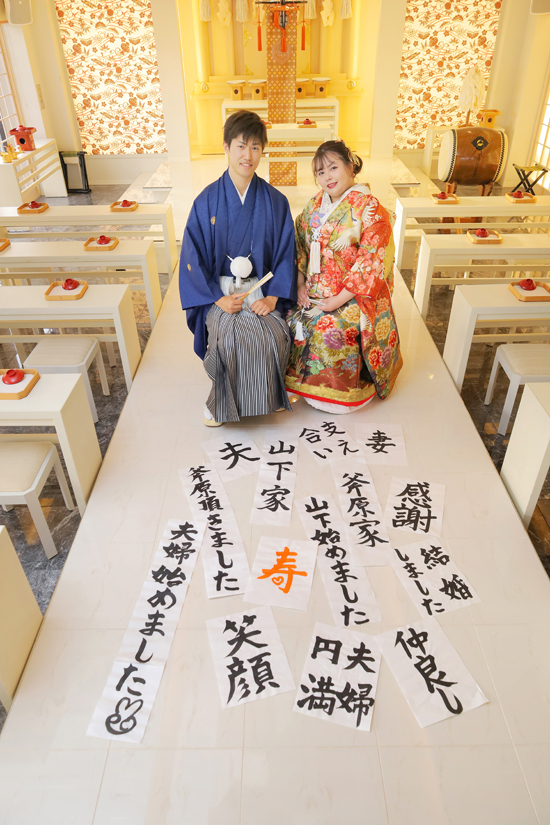 夫
山下家
支え
合い
妻
斧原頂きました
斧原家
感謝
山下始めました
結婚
しました
夫婦始めました
寿
笑顔
夫婦
円満
仲良し